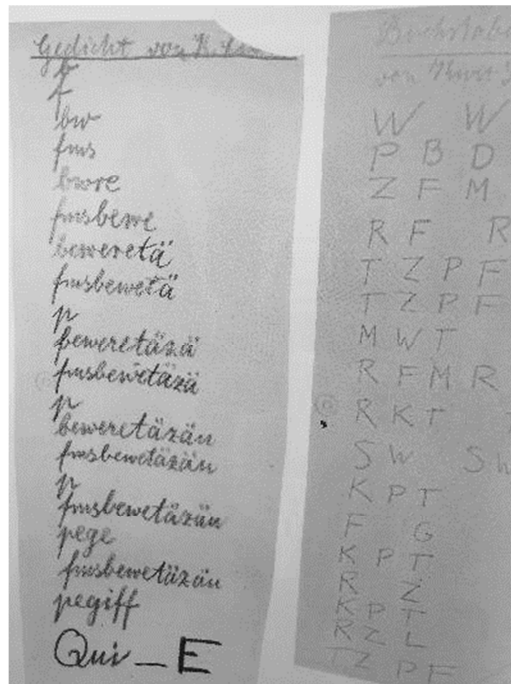 Gedicht von
b
f
bw
fms
bwre
fmsbewe
beweretä
fmsbewetä
p
beweretäzä
fmsbewetäzä
p
beweretäzän
fmsbewetäzän
p
fmsbewetäzän
pege
fmsbewetäzän
pegiff
Qui_E
von
W W
P B D
Z F M
R F R
T Z P F
T Z P F
M W T
R F M R
R K T
S W S W
K P T
F G
K P T
R Z
K P T
R Z L
T Z P F